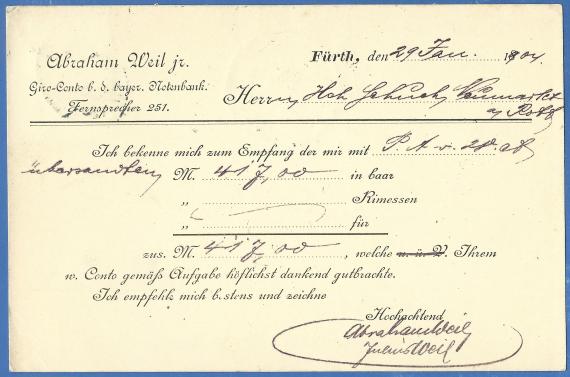 Abraham Weil jr.
Giro-Conto b. d. bayer. Notenbank.
Fernsprecher 251.
Fürth, den 29 Jan. 1904
Herrn Hch Schuch, Neumarkt
a/ Rott
Ich bekenne mich zum Empfang der mir mit P. A. v. 28. ds
übersandten M. 417,00 in baar
„ Rimessen
„ für
zus. M. 417,00, welche m ü V. Ihrem
w. Conto gemäß Aufgabe höflichst dankend gutbrachte.
Ich empfehle mich b.stens und zeichne
Hochachtend
Abraham Weil
Julius Weil